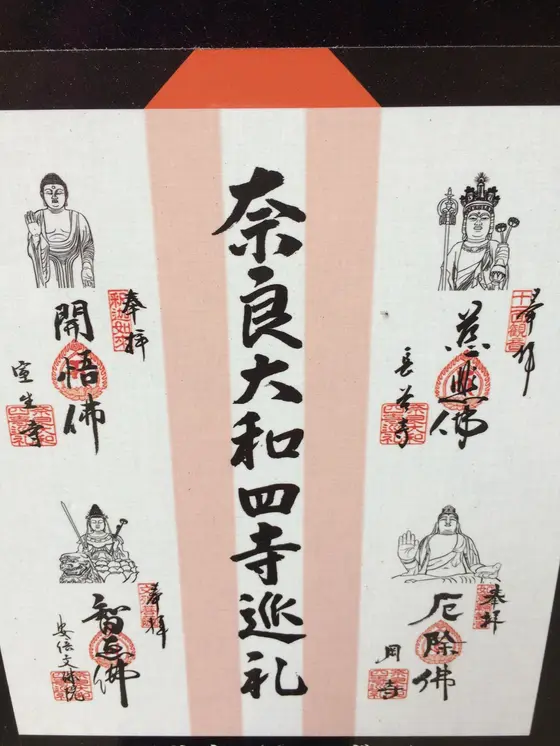 奉拝
十一面観音
佛
長谷寺
奉拝
厄除佛
岡寺
奈良大和四寺巡礼
奉拝
釈迦如来
開悟佛
室生寺
奉拝
智恵佛
安倍文殊院